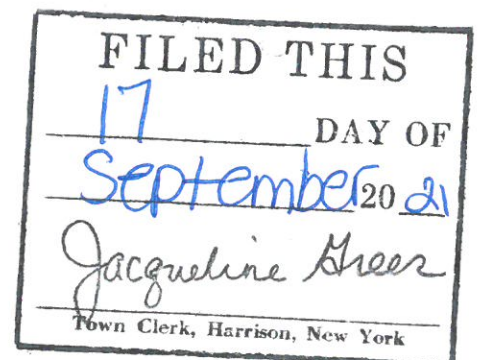 FILED THIS
17 DAY OF
September 20 21
Jacqueline Greer
Town Clerk, Harrison, New York